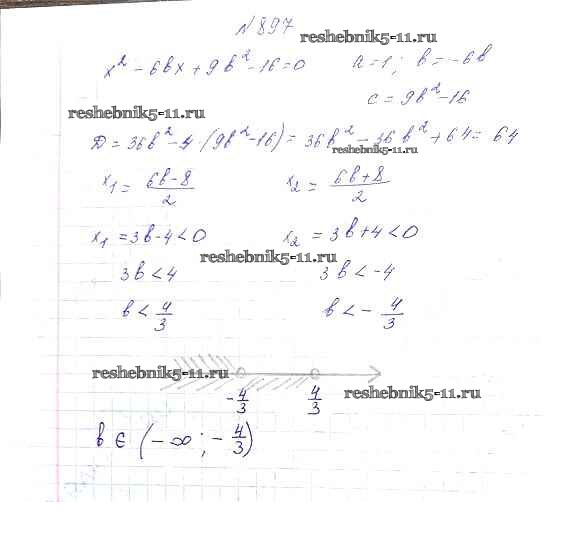 № 897
reshebnik5-11.ru
x² - 6bx + 9b² - 16 = 0    a = 1; b = -6b
c = 9b² - 16
reshebnik5-11.ru
D = 36b² - 4(9b² - 16) = 36b² - 36b² + 64 = 64
reshebnik5-11.ru
x₁ = (6b - 8)/2    x₂ = (6b + 8)/2
x₁ = 3b - 4 < 0    x₂ = 3b + 4 < 0
reshebnik5-11.ru
3b < 4    3b < -4
b < 4/3    b < - 4/3
reshebnik5-11.ru
-4/3    4/3    reshebnik5-11.ru
b ∈ (-∞; -4/3)